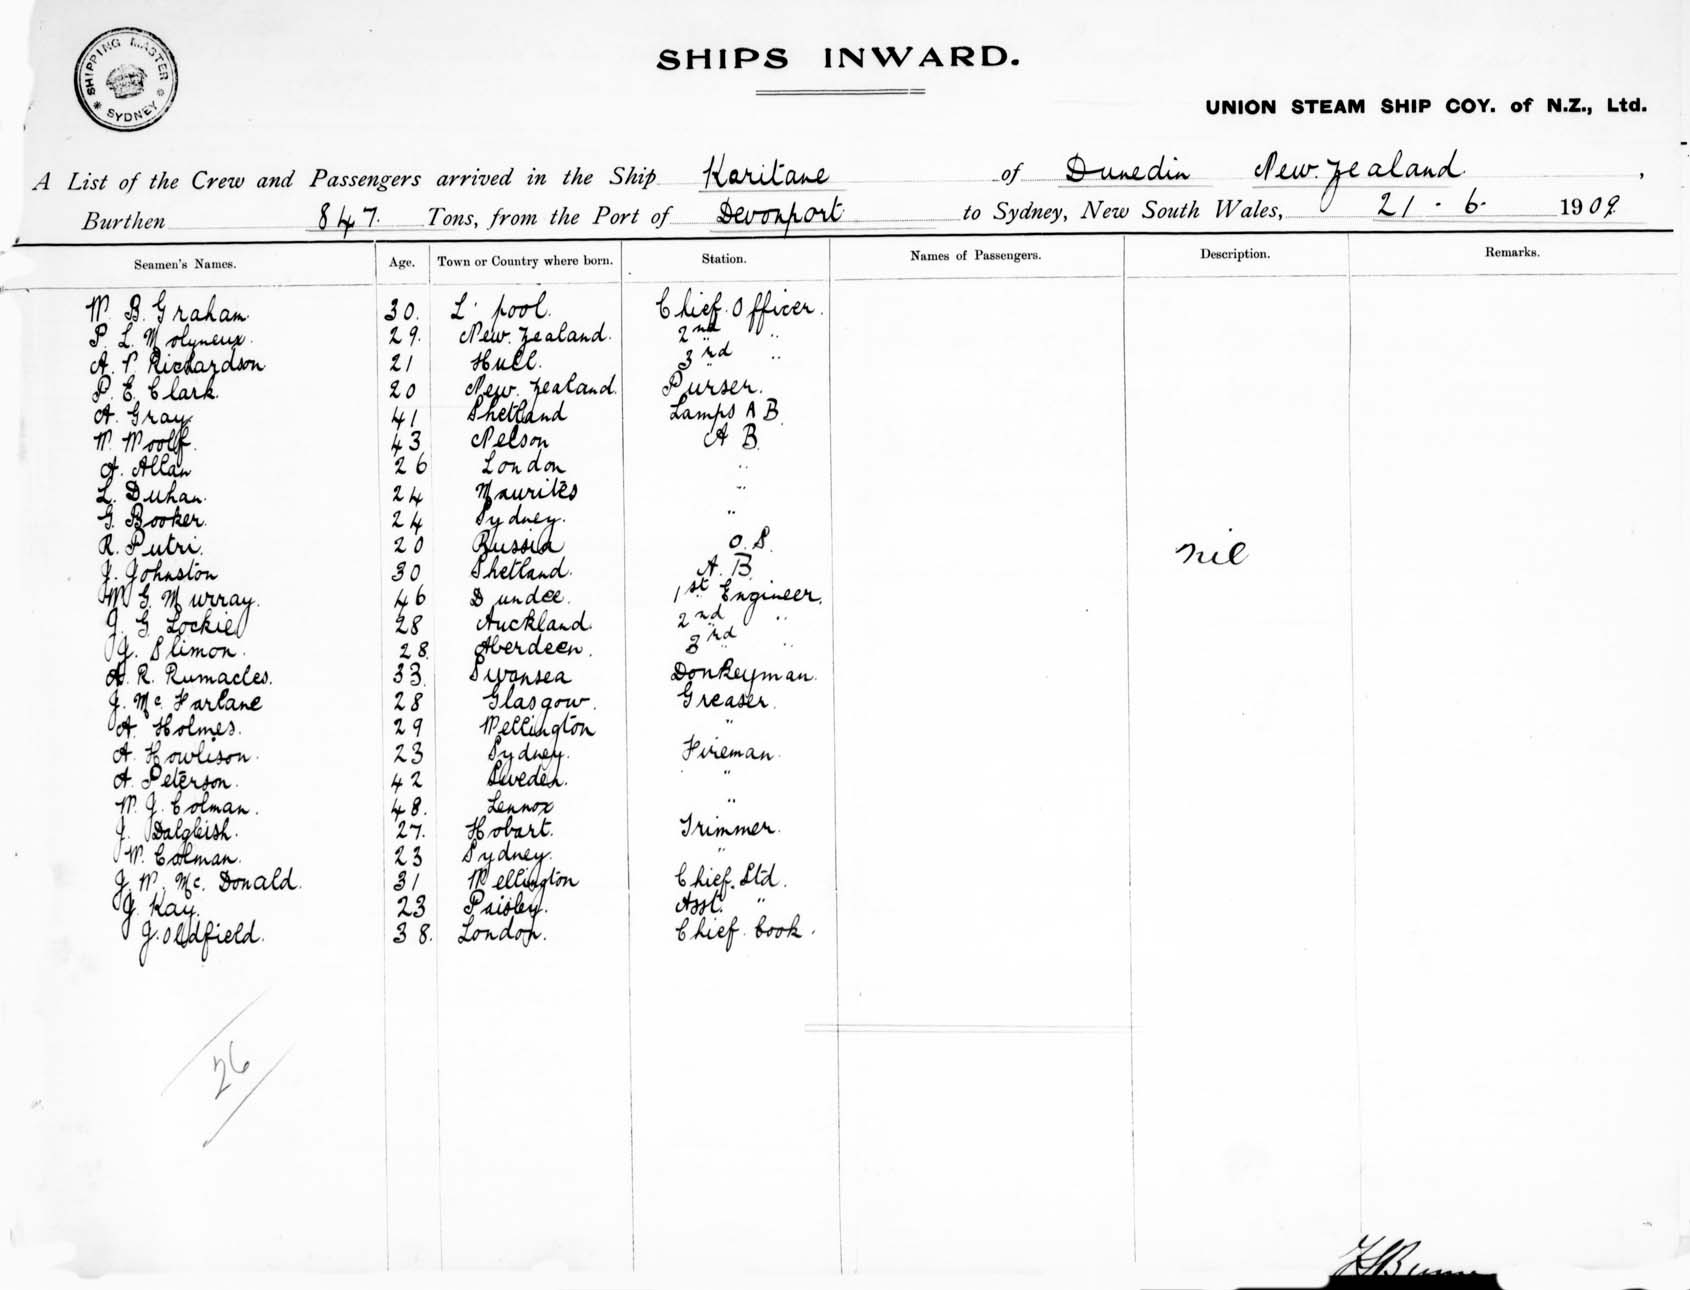 SHIPPING MASTER SYDNEY
SHIPS INWARD.
UNION STEAM SHIP COY. of N.Z., Ltd.
A List of the Crew and Passengers arrived in the Ship Karitane of Dunedin New Zealand,
Burthen 847. Tons, from the Port of Devonport to Sydney, New South Wales, 21.6.1909
Seamen's Names. Age. Town or Country where born. Station. Names of Passengers. Description. Remarks.
W. B. Graham 30. L'pool. Chief. Officer.
P. L. Molyneux. 29. New. Zealand. 2nd "
A. P. Richardson 21 Hull. 3rd "
P. E. Clark. 20 New. Zealand. Purser.
A. Gray. 41 Shetland Lamps A B.
W. Woolf. 43 Nelson A B.
A. Allan 26 London "
L. Duhan. 24 Maurites "
G. Booker. 24 Sydney. "
R. Putri. 20 Russia O. S.
nil
J. Johnston 30 Shetland. A. B.
W. G. Murray. 46 Dundee. 1st Engineer.
J. G. Lockie 28 Auckland. 2nd "
J. Slimon. 28. Aberdeen. 3rd "
A. R. Rumacles. 33. Swansea Donkeyman.
J. Mc. Farlane 28 Glasgow. Greaser.
A. Holmes. 29 Wellington "
A. Howlison. 23 Sydney. Fireman.
A. Peterson. 42 Sweden. "
W. J. Colman. 48. Lennox "
J. Dalgleish. 27. Hobart. Trimmer.
W. Colman. 23 Sydney. "
J. W. Mc. Donald. 31 Wellington Chief. Std.
J. Kay. 23 Paisley. Asst. "
J. Oldfield. 38. London. Chief. Cook.
26